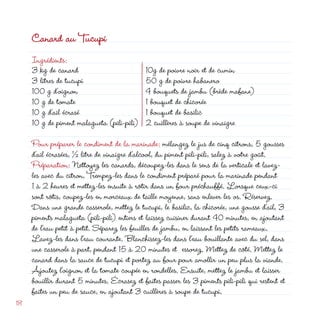 Canard au Tucupi
Ingrédients:
3 kg de canard
3 litres de tucupi
100 g d'oignon
10 g de tomate
10 g d'ail écrasé
10 g de piment malagueta (pili-pili)
10g de poivre noir et de cumin
50 g de poivre habanero
4 bouquets de jambu (brède mafane)
1 bouquet de chicorée
1 bouquet de basilic
2 cuillères à soupe de vinaigre
Pour préparer le condiment de la marinade: mélangez le jus de cinq citrons, 5 gousses
d'ail écrasées, ½ litre de vinaigre d'alcool, du piment pili-pili, salez à votre goût.
Préparation: Nettoyez les canards, découpez-les dans le sens de la verticale et lavez-
les avec du citron. Trempez-les dans le condiment préparé pour la marinade pendant
1 à 2 heures et mettez-les ensuite à rôtir dans un four préchauffé. Lorsque ceux-ci
sont rôtis, coupez-les en morceaux de taille moyenne, sans enlever les os. Réservez.
Dans une grande casserole, mettez le tucupi, le basilic, la chicorée, une gousse d'ail, 3
piments malagueta (pili-pili) entiers et laissez cuisiner durant 40 minutes, en ajoutant
de l'eau petit à petit. Séparez les feuilles de jambu, en laissant les petits rameaux.
Lavez-les dans l'eau courante. Blanchissez-les dans l'eau bouillante avec du sel, dans
une casserole à part, pendant 15 à 20 minutes et essorez. Mettez de coté. Mettez le
canard dans la sauce de tucupi et portez au four pour amollir un peu plus la viande.
Ajoutez l'oignon et la tomate coupée en rondelles. Ensuite, mettez le jambu et laisser
bouillir durant 5 minutes. Écrasez et faites passer les 3 piments pili-pili qui restent et
faites un peu de sauce, en ajoutant 3 cuillères à soupe de tucupi.